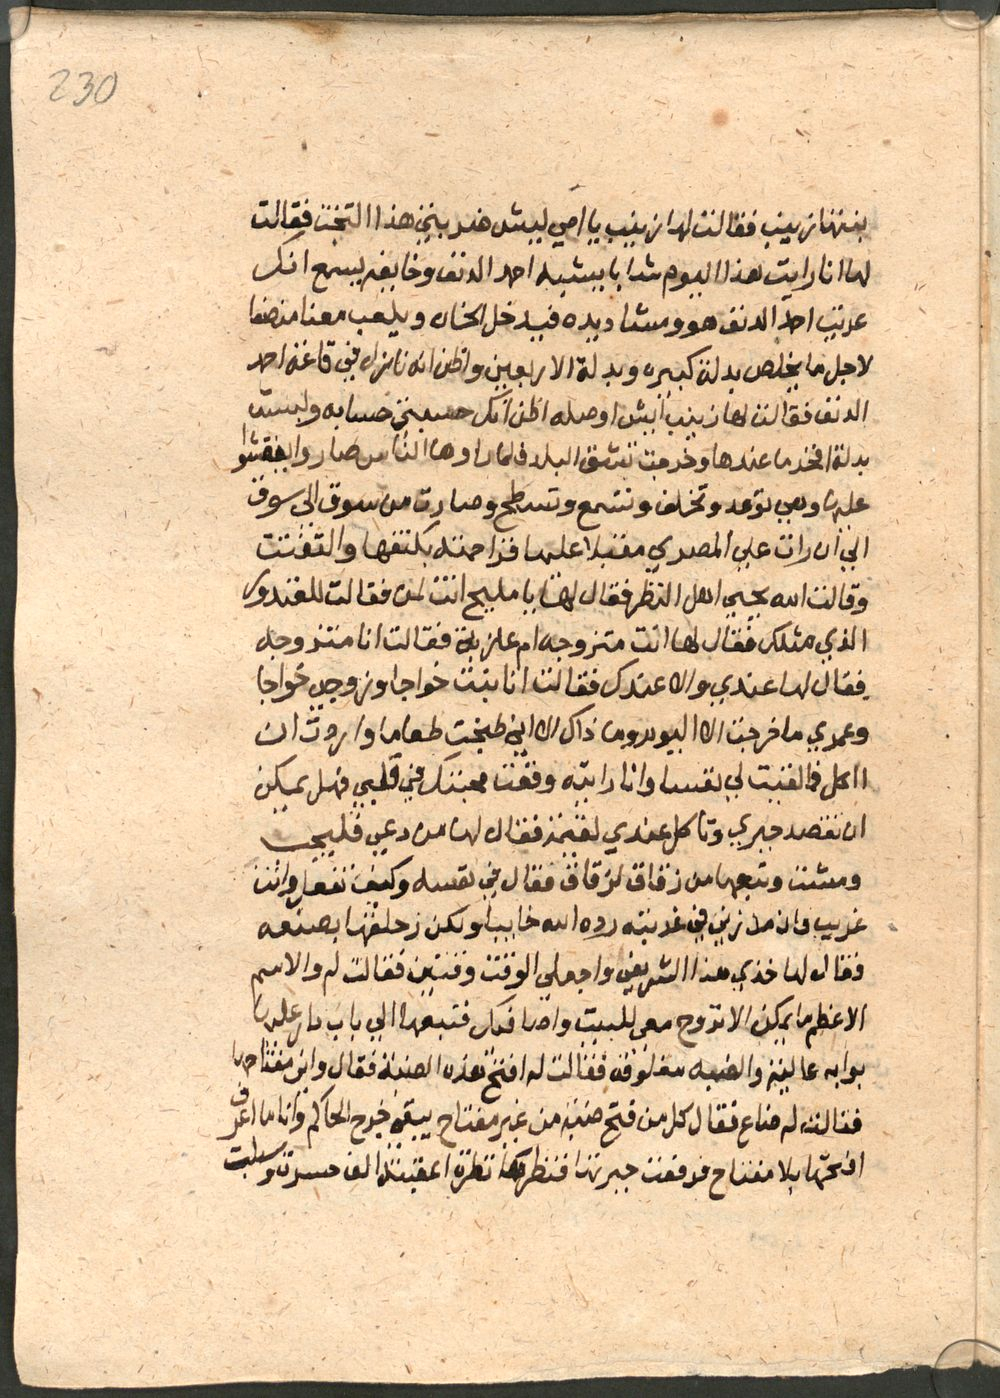 230
بنتها زينب فقالت لها زينب يا امي ليش ضربتي هذا التخت فقالت
لها انا رايت هذا اليوم شابا يشبه احمد الدنف وخايفه يسمع انك
عريتي احمد الدنف هو ومشاديده فيدخل الخان ويلعب معنا منصفا
لاجل ما يخلص بدلة كبيره وبدلة الاربعين واظن انه نازل في قاعة احمد
الدنف فقالت لها زينب ايش اوصله اظن انك حسبتي حسابه ولبست
بدلة افخر ما عندها وخرجت تشق البلد فلما راوها الناس صاروا يتعشقوا
عليها وهي توعد وتحلف وتسمع وتسطح وصارت من سوق الى سوق
الي ان رات علي المصري مقبلا عليها فزاحمته بكتفها والتفتت
وقالت الله يحيي اهل النظر فقال لها يا مليح انت لمن فقالت للغندور
الذي مثلك فقال لها انت متزوجه ام عازبة فقالت انا متزوجه
فقال لها عندي والا عندك فقالت انا بنت خواجا وزوجي خواجا
وعمري ما خرجت الا اليوم وما ذاك الا اني طبخت طعاما واردت ان
ااكل فما لقيت لي نفسا وانا رايته وقعت محبتك في قلبي فهل يمكن
ان تقصد جبري وتاكل عندي لقمة فقال لها من دعي فليجب
ومشت وتبعها من زقاق لزقاق فقال في نفسه وكيف تفعل وانت
غريب وان من زني في غربته رده الله خايبا ولكن زحلقها بصنعه
فقال لها خذي هذا الشريفي واجعلي الوقت وقتين فقالت له والاسم
الاعظم ما يمكن الا تروح معي للبيت واصافيك فتبعها الي باب دار عليها
بوابه عالية والضبه مغلوقه فقالت له افتح هذه الضبة فقال واين مفتاحها
فقالت له ضاع فقال كل من فتح ضبة من غير مفتاح يبقي خرج الحاكم وانا ما اعرف
افتحها بلا مفتاح فرفعت حبرتها فنظرها نظرة اعقبته الف حسرة وسلبت